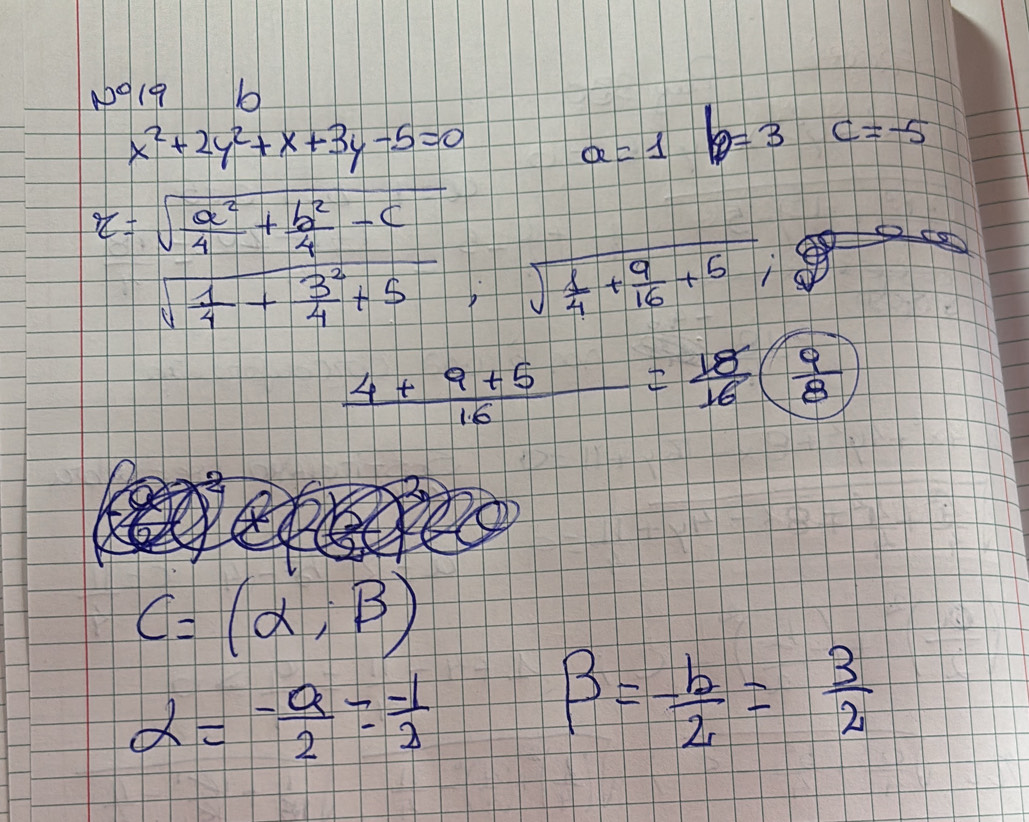 N°19 b
x²+2y²+x+3y-5=0 a=1 b=3 c=-5
r=√(a²/4 + b²/4 - c)
√(1/4 + 3²/4 + 5) ; √(1/4 + 9/16 + 5) ;
(4 + 9 + 5)/16 = 18/16 9/8
C= (α ; β)
α = -a/2 = -1/2 β = -b/2 = 3/2